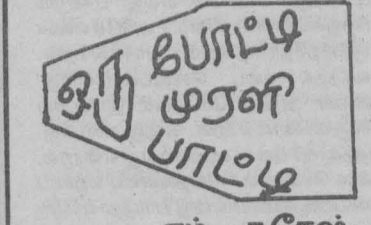 ஒரு
போட்டி
முரளி
பாட்டி